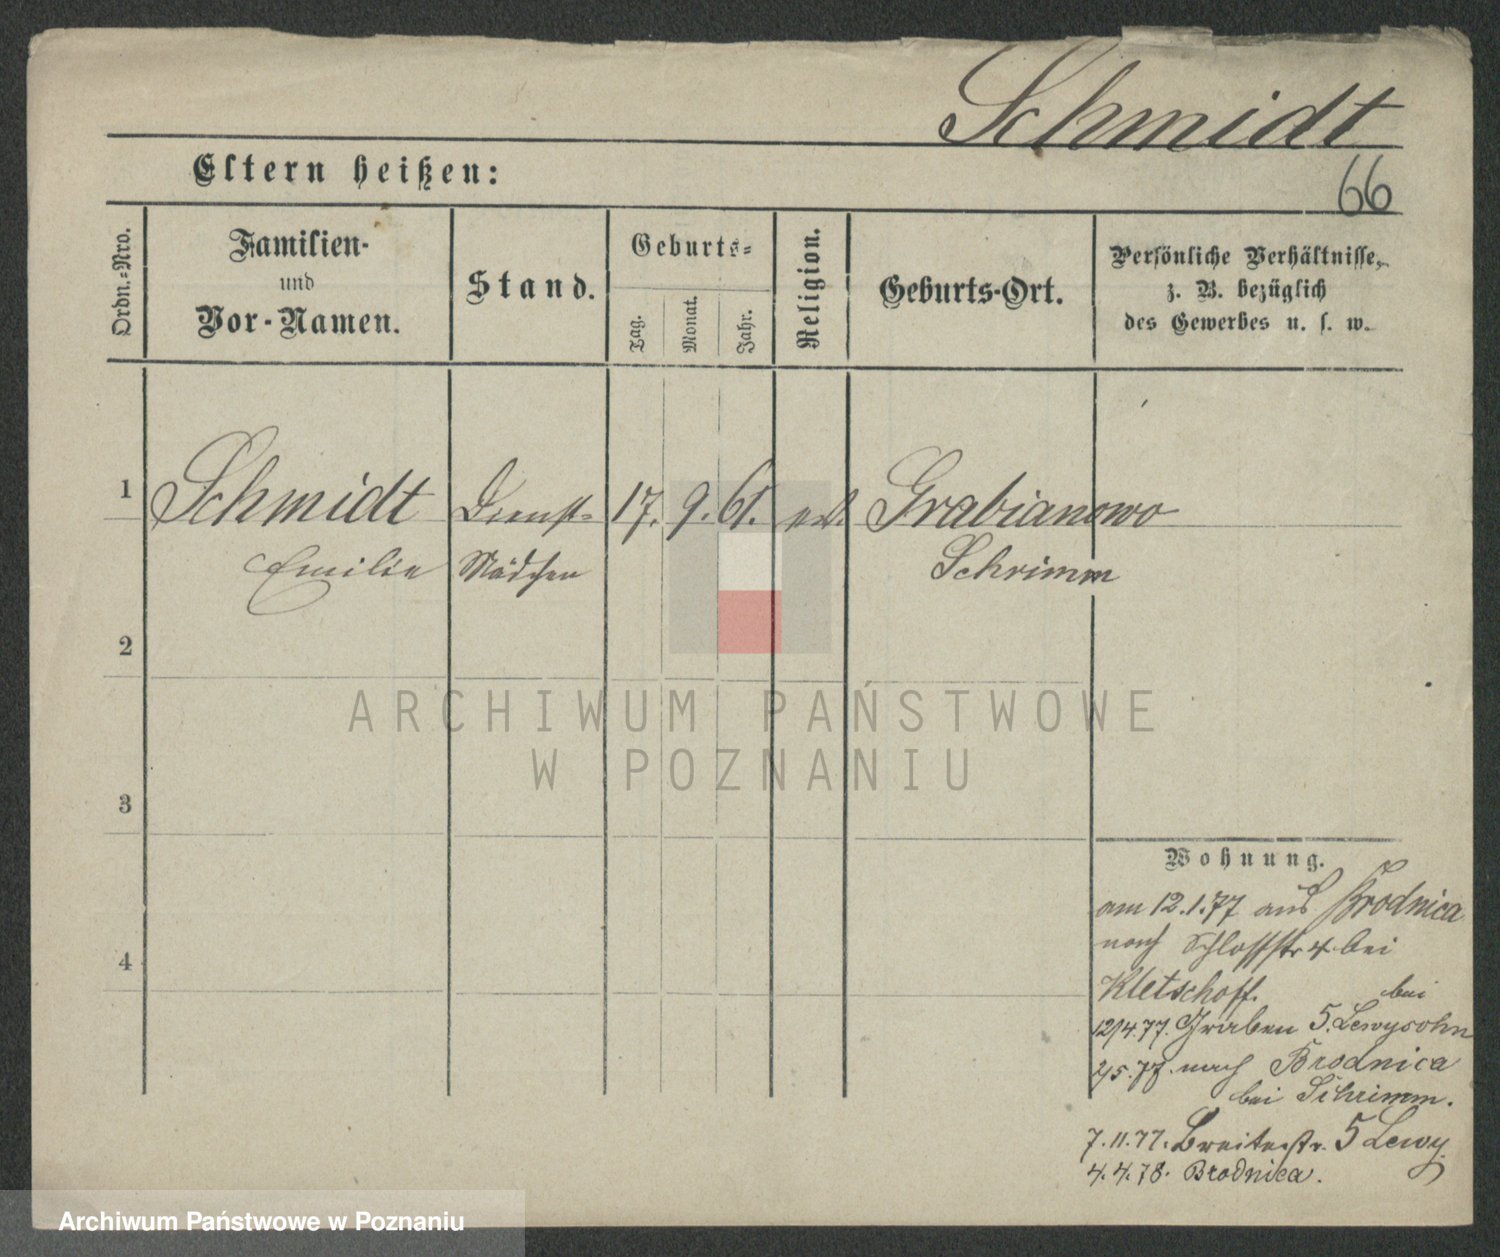 Schmidt
66
Eltern heißen:
Ordn.-Nro.
Familien-
und
Vor-Namen.
Stand.
Geburts-
Tag.
Monat.
Jahr.
Religion.
Geburts-Ort.
Persönliche Verhältnisse,
z. B. bezüglich
des Gewerbes u. s. w.
1 Schmidt Dienst- 17. 9. 61. Grabianowo
Emilie Mädchen Schrimm
2
3
4
Wohnung.
am 12.1.77 aus Brodnica
nach Schloßstr 4 bei
Kletschoff.
bei
12/4.77. Graben 5. Lewysohn
2/5.77. nach Brodnica
bei Schrimm.
7.11.77. Breitestr. 5 Lewy
4.4.78. Brodnica.
ARCHIWUM PAŃSTWOWE
W POZNANIU
Archiwum Państwowe w Poznaniu